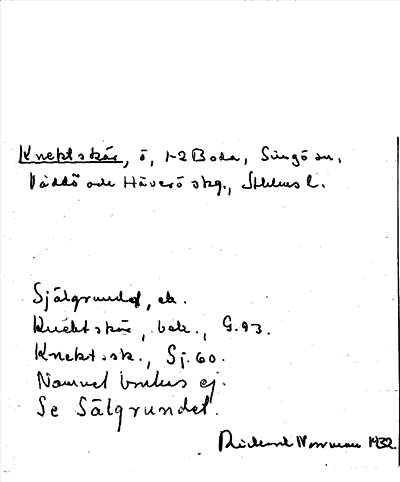 Knektskär, ö, 1-2 Boda, Singö sn,
Väddö och Häverö skg., Sthlms l.
Själgrundet, ek.
Knektskär, bok., G.93.
Knektssk., Sj.60.
Namnet brukas ej.
Se Sälgrundet.
Rickard Norrman 1932.